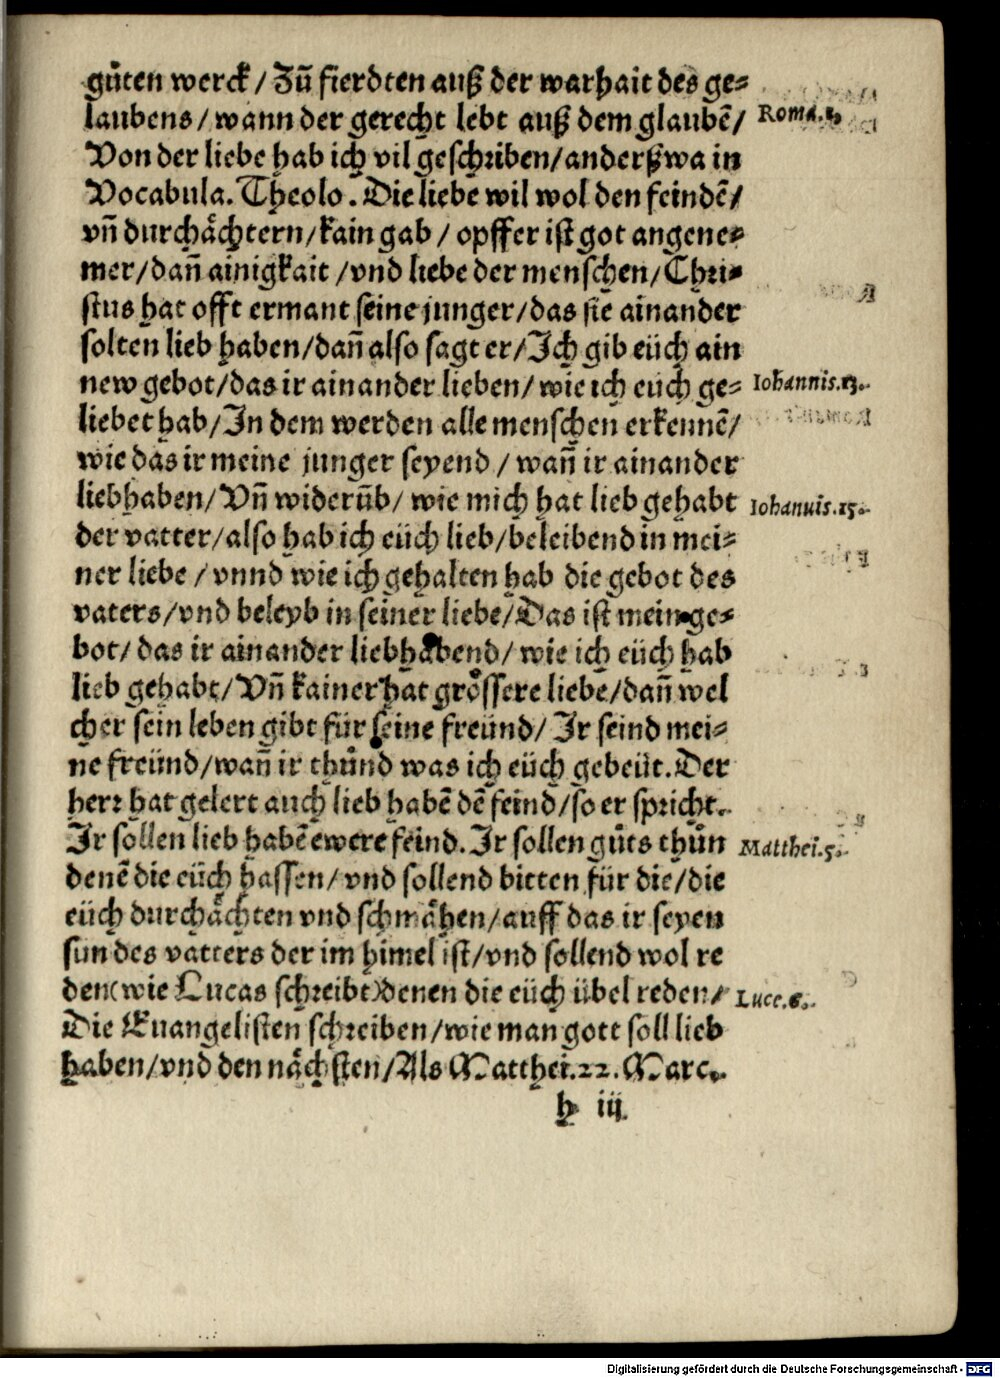 guͦten werck / Zuͦ fierdten auß der warhait des ge⸗
laubens / wann der gerecht lebt auß dem glaubē / Roma.1.
Von der liebe hab ich vil geschriben / anderßwa in
Vocabula. Theolo. Die liebe wil wol den feindē /
vñ durchaͤchtern / kain gab / opffer ist got angene⸗
mer / dañ ainigkait / vnd liebe der menschen / Chri⸗
stus hat offt ermant seine junger / das sie ainander
solten lieb haben / dañ also sagt er / Ich gib eüch ain
new gebot / das ir ainander lieben / wie ich euch ge⸗ Iohannis.13.
liebet hab / In dem werden alle menschen erkennē /
wie das ir meine junger seyend / wañ ir ainander
liebhaben / Vñ widerūb / wie mich hat lieb gehabt Iohannis.15.
der vatter / also hab ich eüch lieb / beleibend in mei⸗
ner liebe / vnnd wie ich gehalten hab die gebot des
vaters / vnd beleyb in seiner liebe / Das ist mein ge⸗
bot / das ir ainander liebhabend / wie ich eüch hab
lieb gehabt / Vñ kainer hat groͤssere liebe / dañ wel
cher sein leben gibt für seine freünd / Ir seind mei⸗
ne freünd / wañ ir thuͦnd was ich eüch gebeüt. Der
herr hat gelert auch lieb habē dē feind / so er spricht.
Ir sollen lieb habē ewere feind. Ir sollen guͦts thuͦn Matthei.5.
denē die eüch hassen / vnd sollend bitten für die / die
eüch durchaͤchten vnd schmaͤhen / auff das ir seyen
sun des vatters der im himel ist / vnd sollend wol re
den (wie Lucas schreibt) denen die eüch übel reden / Luce.6.
Die Euangelisten schreiben / wie man gott soll lieb
haben / vnd den naͤchsten / Als Matthei.22. Marc.
h iij.
Digitalisierung gefördert durch die Deutsche Forschungsgemeinschaft - DFG